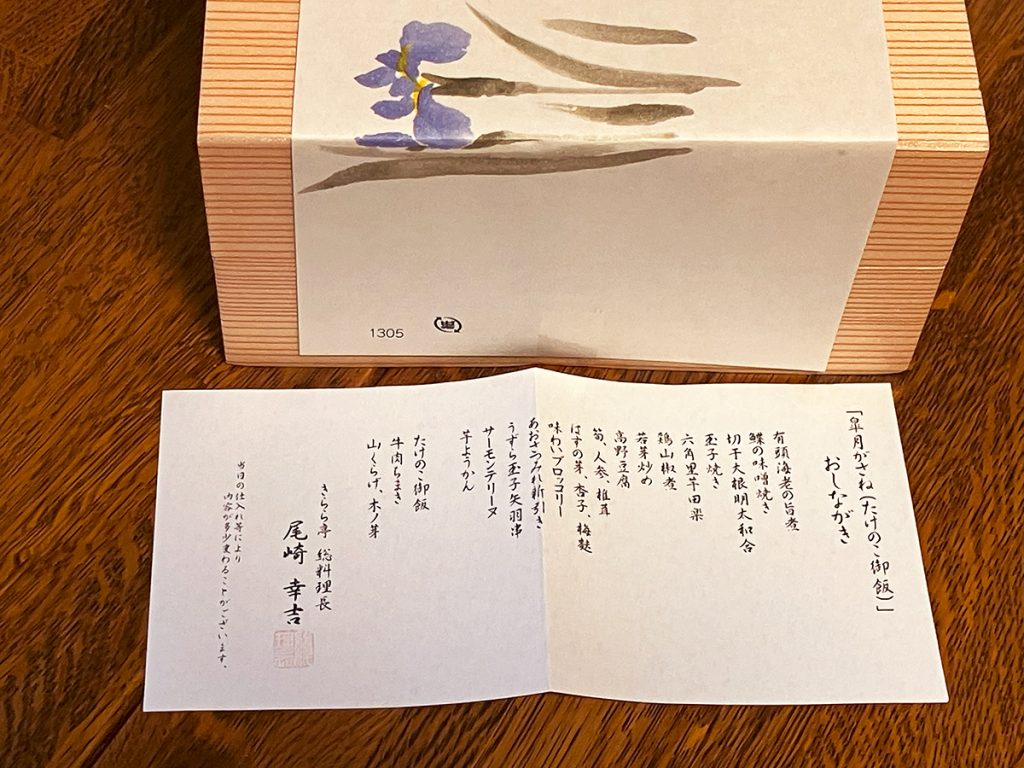 1305
「皐月がさね(たけのこ御飯)」
おしながき
有頭海老の旨煮
鰈の味噌焼き
切干大根明太和合
玉子焼き
六角里芋田楽
鶏山椒煮
若芽炒め
高野豆腐
筍、人参、椎茸
はすの芽、杏子、梅麩
味わいブロッコリー
あおさつみれ新引き
うずら玉子矢羽串
サーモンテリーヌ
芋ようかん
たけのこ御飯
牛肉ちまき
山くらげ、木ノ芽
きらら亭 総料理長
尾崎 幸吉
当日の仕入れ等により
内容が多少変わることがございます。